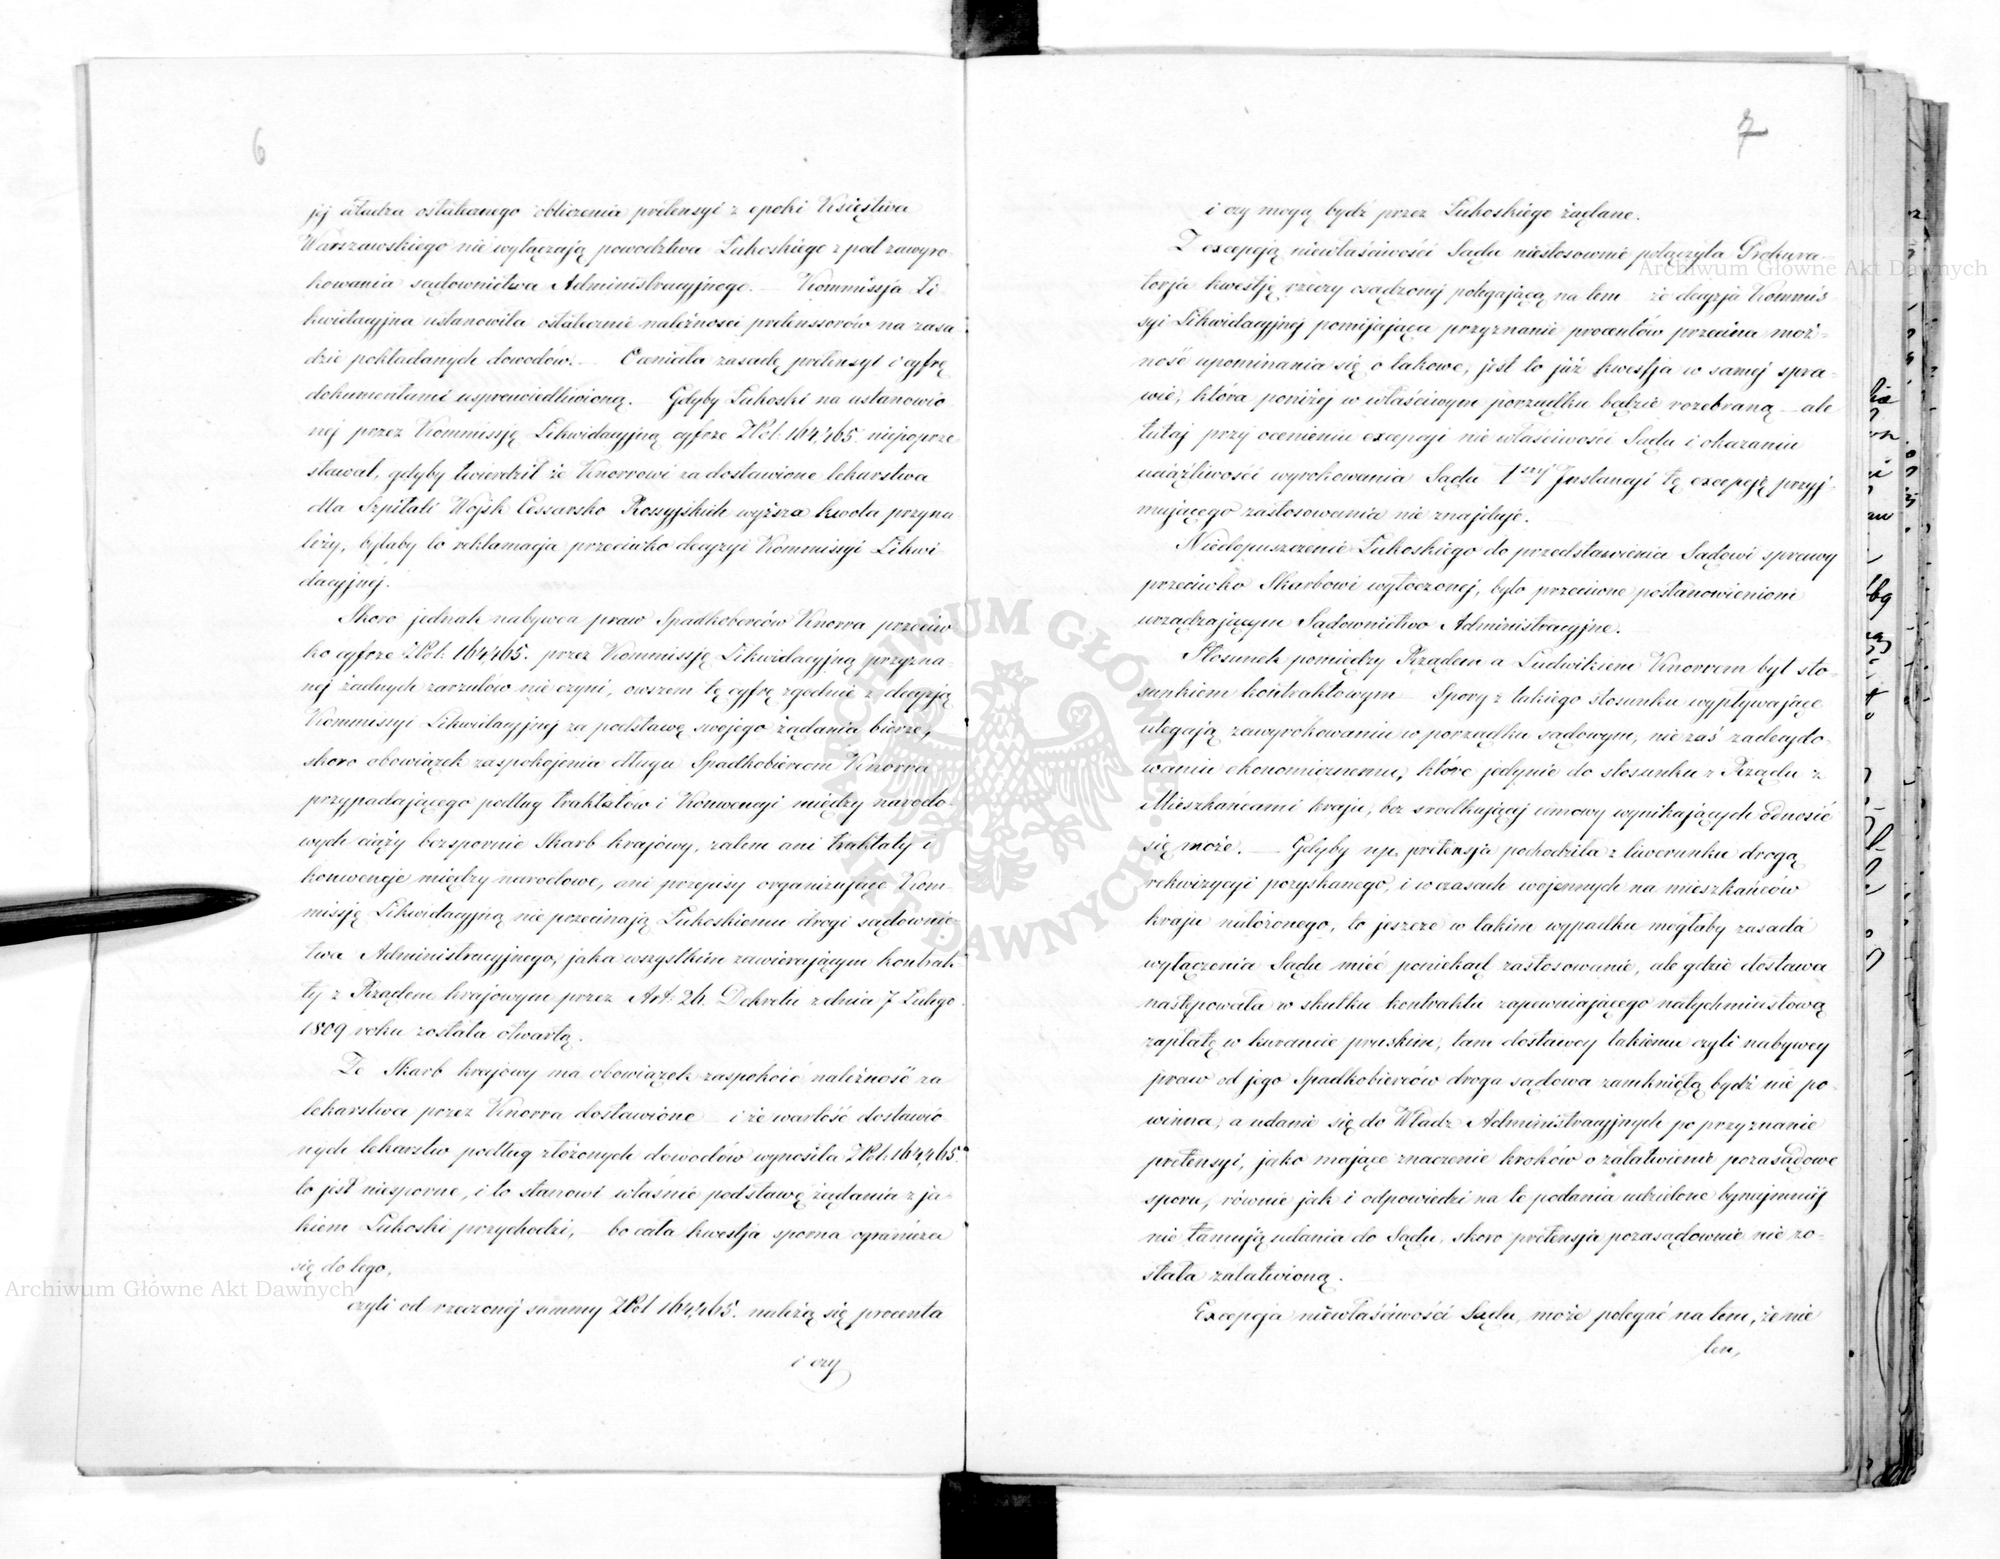 6
jéj władza ostatecznego obliczenia pretensyi z epoki Księstwa
Warszawskiego nie wyłączają powodztwa Łukoskiego z pod zawyro-
kowania sądownictwa Administracyjnego. — Kommissja Li-
kwidacyjna ustanowiła ostatecznie należności pretenssorów na zasa
dzie pokładanych dowodów. — Oceniała zasadę pretensyi i cyfrę
dokumentami usprawiedliwioną. — Gdyby Łukoski na ustanowio
nej przez Kommissję Likwidacyjną cyfrze ZłPol: 164,465. niepoprze
stawał, gdyby twierdził że Knorrowi za dostawione lekarstwa
dla Szpitali Wojsk Cessarsko Rossyjskich wyższa kwota przyna
leży, byłaby to reklamacja przeciwko decyzyi Kommissyi Likwi
dacyjnej.
Skoro jednak nabywca praw Spadkobierców Knorra przeciw
ko cyfrze ZłPol: 164,465. przez Kommissję Likwidacyjną przyzna-
nej żadnych zarzutów nie czyni, owszem tę cyfrę zgodnie z decyzją
Kommissyi Likwidacyjnej za podstawę swojego żądania bierze,
skoro obowiązek zaspokojenia długu Spadkobiercom Knorra
przypadającego podług traktatów i Konwencyi między narodo-
wych ciąży bezspornie Skarb krajowy, zatem ani traktaty i
konwencje między narodowe, ani przepisy organizujące Kom-
missję Likwidacyjną nie przecinają Łukoskiemu drogi sądownic-
twa Administracyjnego, jaka wszystkim zawierającym kontrak-
ty z Rządem krajowym przez Art: 26. Dekretu z dnia 7 Lutego
1809 roku została otwartą.
Że Skarb krajowy ma obowiązek zaspokoić należność za
lekarstwa przez Knorra dostawione — i że wartość dostawio-
nych lekarstw podług złożonych dowodów wynosiła ZłPol: 164,465.
to jest niesporne, i to stanowi właśnie podstawę żądania z ja-
kiem Łukoski przychodzi, — bo cała kwestja sporna ogranicza
się do tego,
czyli od rzeczonéj summy ZłPol 164,465. należą się procenta
i czy
7
i czy mogą bydź przez Łukoskiego żądane.
Z excepcją niewłaściwości Sądu niestosownie połączyła Prokura-
torja kwestję rzeczy osądzonej polegającą na tem że decyzja Kommis
syi Likwidacyjnej pomijająca przyznanie procentów przecina moż-
ność upominania się o takowe, jest to już kwestja w samej spra-
wie, która poniżej w właściwym porządku będzie rozebraną — ale
tutaj przy ocenieniu excepcyi nie właściwości Sądu i okazaniu
uciążliwości wyrokowania Sądu 1szej Instancyi tę excepcję przyj-
mującego zastosowania nie znajduje.
Niedopuszczenie Łukoskiego do przedstawienia Sądowi sprawy
przeciwko Skarbowi wytoczonej, było przeciwne postanowieniom
urządzającym Sądownictwo Administracyjne.
Stosunek pomiędzy Rządem a Ludwikiem Knorrem był sto-
sunkiem kontraktowym — Spory z takiego stosunku wypływające
ulegają zawyrokowaniu w porządku sądowym, nie zaś zadecydo-
waniu ekonomicznemu, które jedynie do stosunku z Rządu z
Mieszkańcami kraju, bez srodkującej umowy wynikających odnosić
się może. — Gdyby np. pretensja pochodziła z liwerunku drogą
rekwizycyi pozyskanego, i w czasach wojennych na mieszkańców
kraju nałożonego, to jeszcze w takim wypadku mogłaby zasada
wyłączenia Sądu mieć poniekąd zastosowanie, ale gdzie dostawa
następowała w skutku kontraktu zapewniającego natychmiastową
zapłatę w kurancie pruskim, tam dostawcy takiemu czyli nabywcy
praw od jego Spadkobierców droga sądowa zamkniętą bydź nie po-
winna, a udanie się do Władz Administracyjnych po przyznanie
pretensyi, jako mające znaczenie kroków o załatwienie pozasądowe
sporu, równie jak i odpowiedzi na te podania udzielone bynajmniej
nie tamują udania do Sądu, skoro pretensja pozasądownie nie zo-
stała załatwioną.
Excepcja niewłaściwości Sądu, może polegać na tem, że nie
ten,
Archiwum Główne Akt Dawnych
Archiwum Główne Akt Dawnych
ARCHIWUM GŁÓWNE AKT DAWNYCH